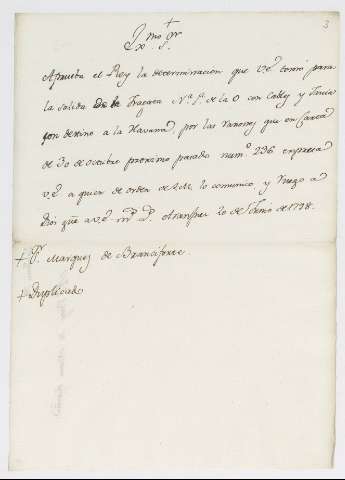 3
+
Ex.mo S.or
Aprueba el Rey la determinacion que V.E. tomó para
la salida de la Fragata N.a S.a de la O con Caldos y
con destino a la Havana, por las razones que en Carta
de 30 de octubre proximo pasado num.o 236 expresa
V.E. a quien de orden de S.M. lo comunico y ruego a
Dios gũe a V.E. m.s a.s Aranjuez 20 de de 1798.
+ S.r Marques de Branciforte.
+ Duplicado